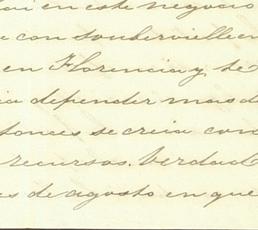 en este negocio
con Soubervielle en
en Florencia y se
ia depender mas d
tonces se creia con
recursos. Verdad
es de agosto en que